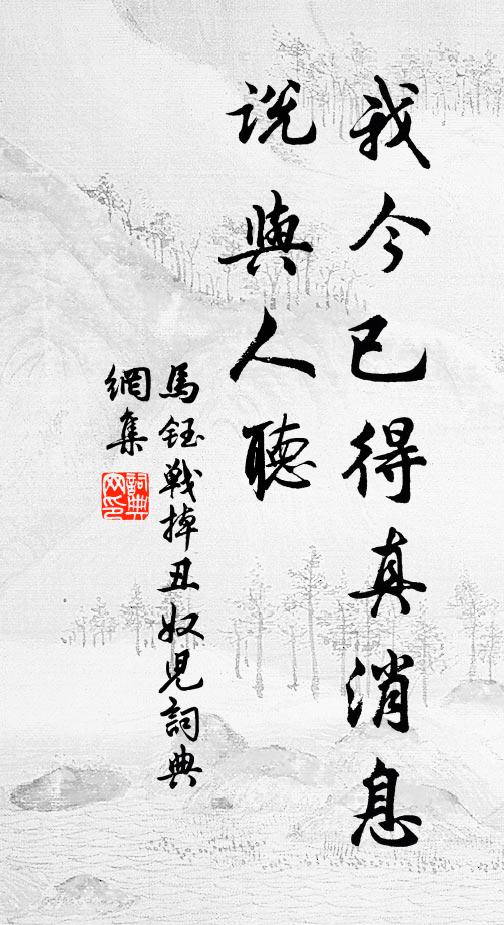 我今已得真消息
說與人聽
馬鈺戰掉丑奴兒詞典
網集
詞典
网印